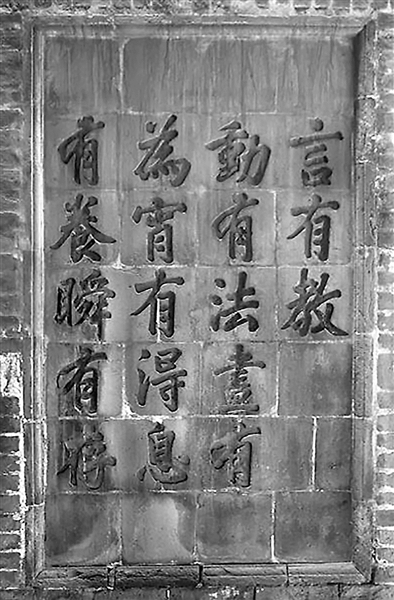 言有教
動有法晝有
為宵有得息
有養瞬有